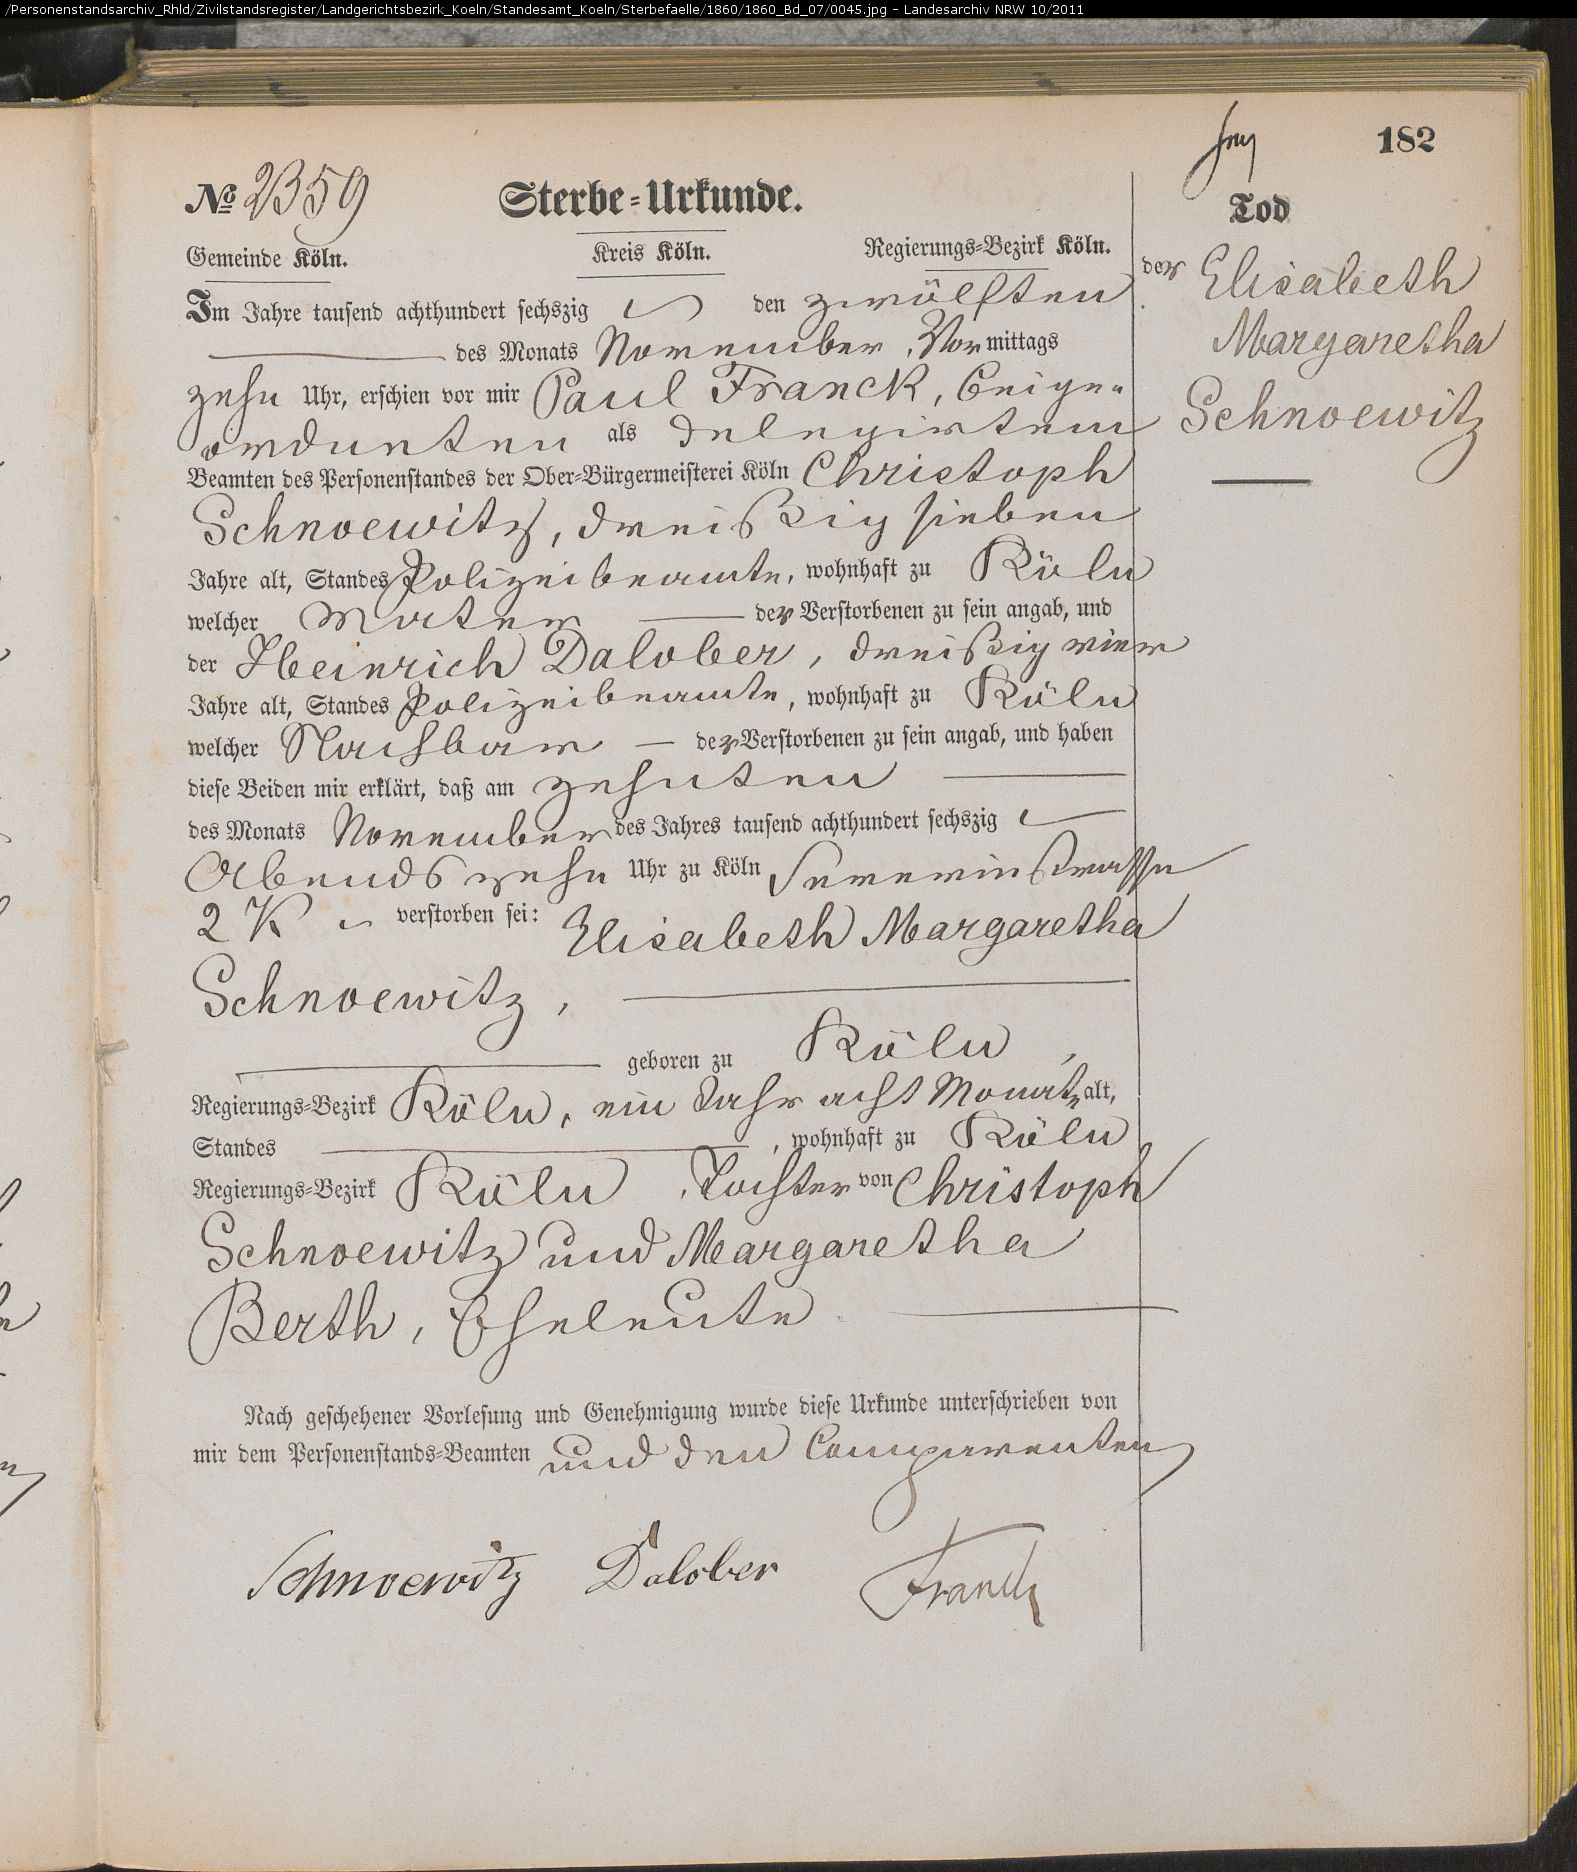 /Personenstandsarchiv_Rhld/Zivilstandsregister/Landgerichtsbezirk_Koeln/Standesamt_Koeln/Sterbefaelle/1860/1860_Bd_07/0045.jpg - Landesarchiv NRW 10/2011
182
No 2359 Sterbe-Urkunde.
Gemeinde Köln. Kreis Köln. Regierungs-Bezirk Köln.
Im Jahre tausend achthundert sechszig den zwölften
des Monats November, Vormittags
zehn Uhr, erschien vor mir Paul Franck, Beige-
ordneten als delegirtem
Beamten des Personenstandes der Ober-Bürgermeisterei Köln Christoph
Schnoewitz, dreißig sieben
Jahre alt, Standes Polizeibeamte, wohnhaft zu Köln
welcher Vater der Verstorbenen zu sein angab, und
der Heinrich Dalober, dreißig vier
Jahre alt, Standes Polizeibeamte, wohnhaft zu Köln
welcher Nachbar der Verstorbenen zu sein angab, und haben
diese Beiden mir erklärt, daß am zehnten
des Monats November des Jahres tausend achthundert sechszig
Abends zehn Uhr zu Köln Severinstrasse
2 K verstorben sei: Elisabeth Margaretha
Schnoewitz,
geboren zu Köln,
Regierungs-Bezirk Köln, ein Jahr acht Monate alt,
Standes , wohnhaft zu Köln
Regierungs-Bezirk Köln, Tochter von Christoph
Schnoewitz und Margaretha
Berth, Eheleute
Nach geschehener Vorlesung und Genehmigung wurde diese Urkunde unterschrieben von
mir dem Personenstands-Beamten und den Comparenten
Schnoewitz Dalober Franck
Tod
der Elisabeth
Margaretha
Schnoewitz